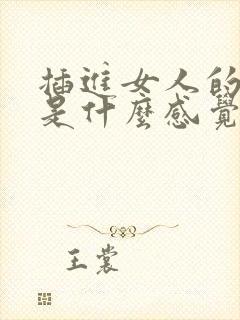 插進女人的
是什麼感覺
王裳